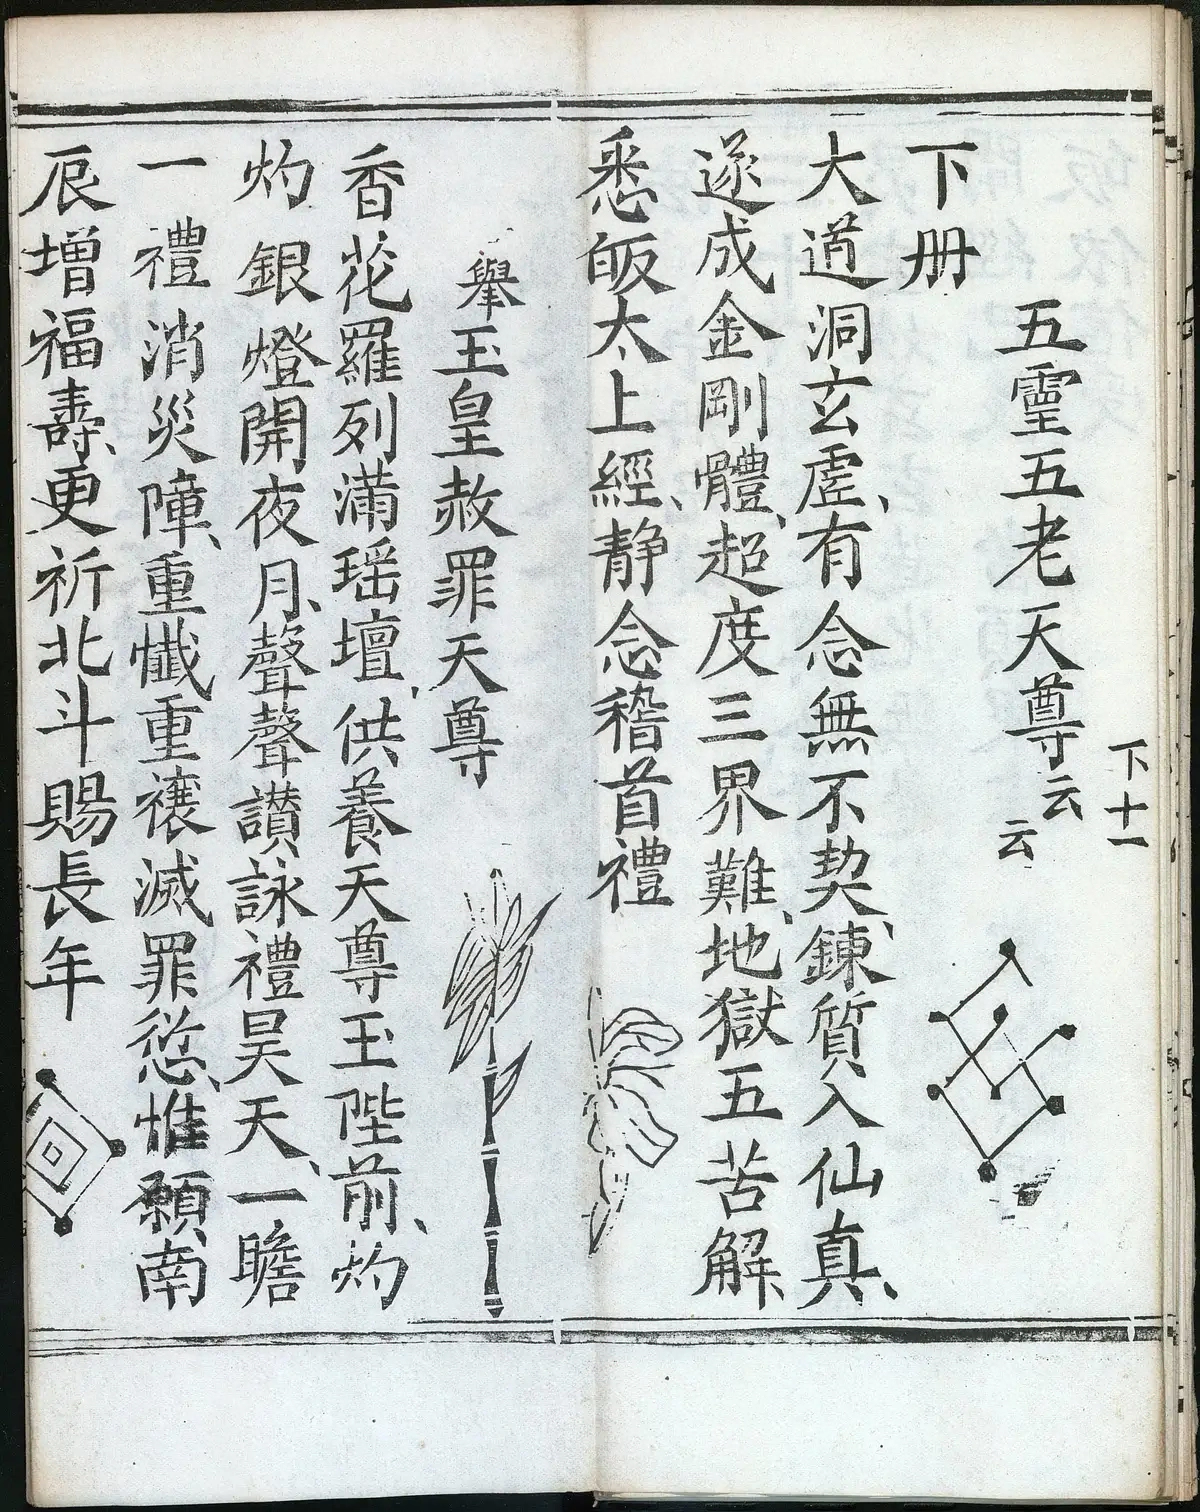 下十一
五霊五老天尊云云
下册
大道洞玄虛、有念無不契、鍊質入仙真、
遂成金剛體、超度三界難、地獄五苦解、
悉皈太上經、静念稽首禮
舉玉皇赦罪天尊
香花羅列滿瑶壇、供養天尊玉陛前、灼
灼銀燈開夜月、聲聲讃詠禮昊天、一瞻
一禮消災障、重懺重禳滅罪愆、惟願南
辰增福壽、更祈北斗賜長年